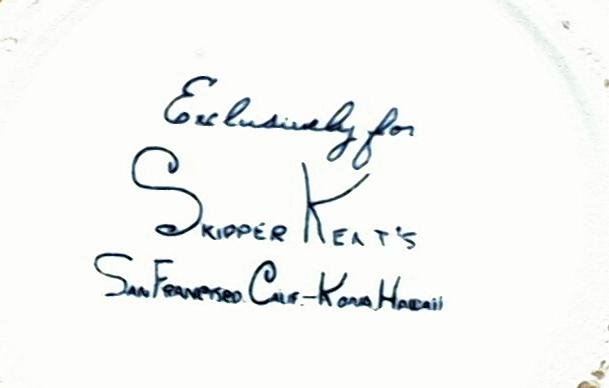 Exclusively for
SKIPPER KENT'S
SAN FRANCISCO. CALIF.-KONA, HAWAII